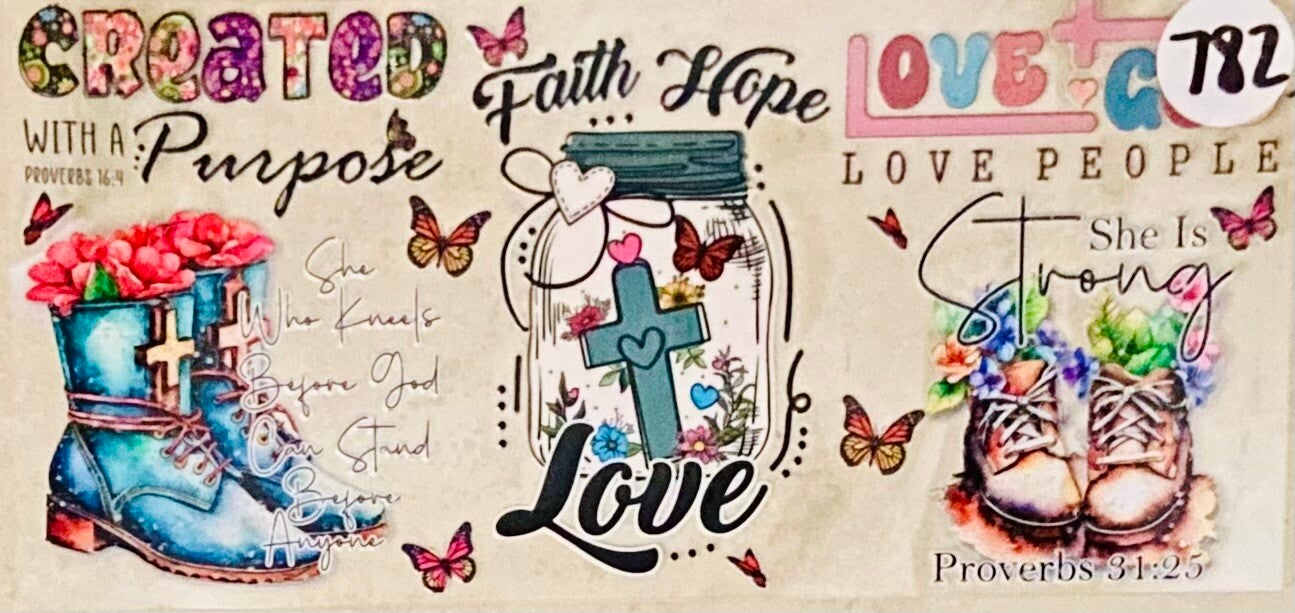 CReaTeD
WITH A Purpose
PROVERBS 16:4
She
Who Kneels
Before God
Can Stand
Before
Anyone
Faith Hope
Love
LOVE
LOVE PEOPLE
782
She Is
Strong
Proverbs 31:25